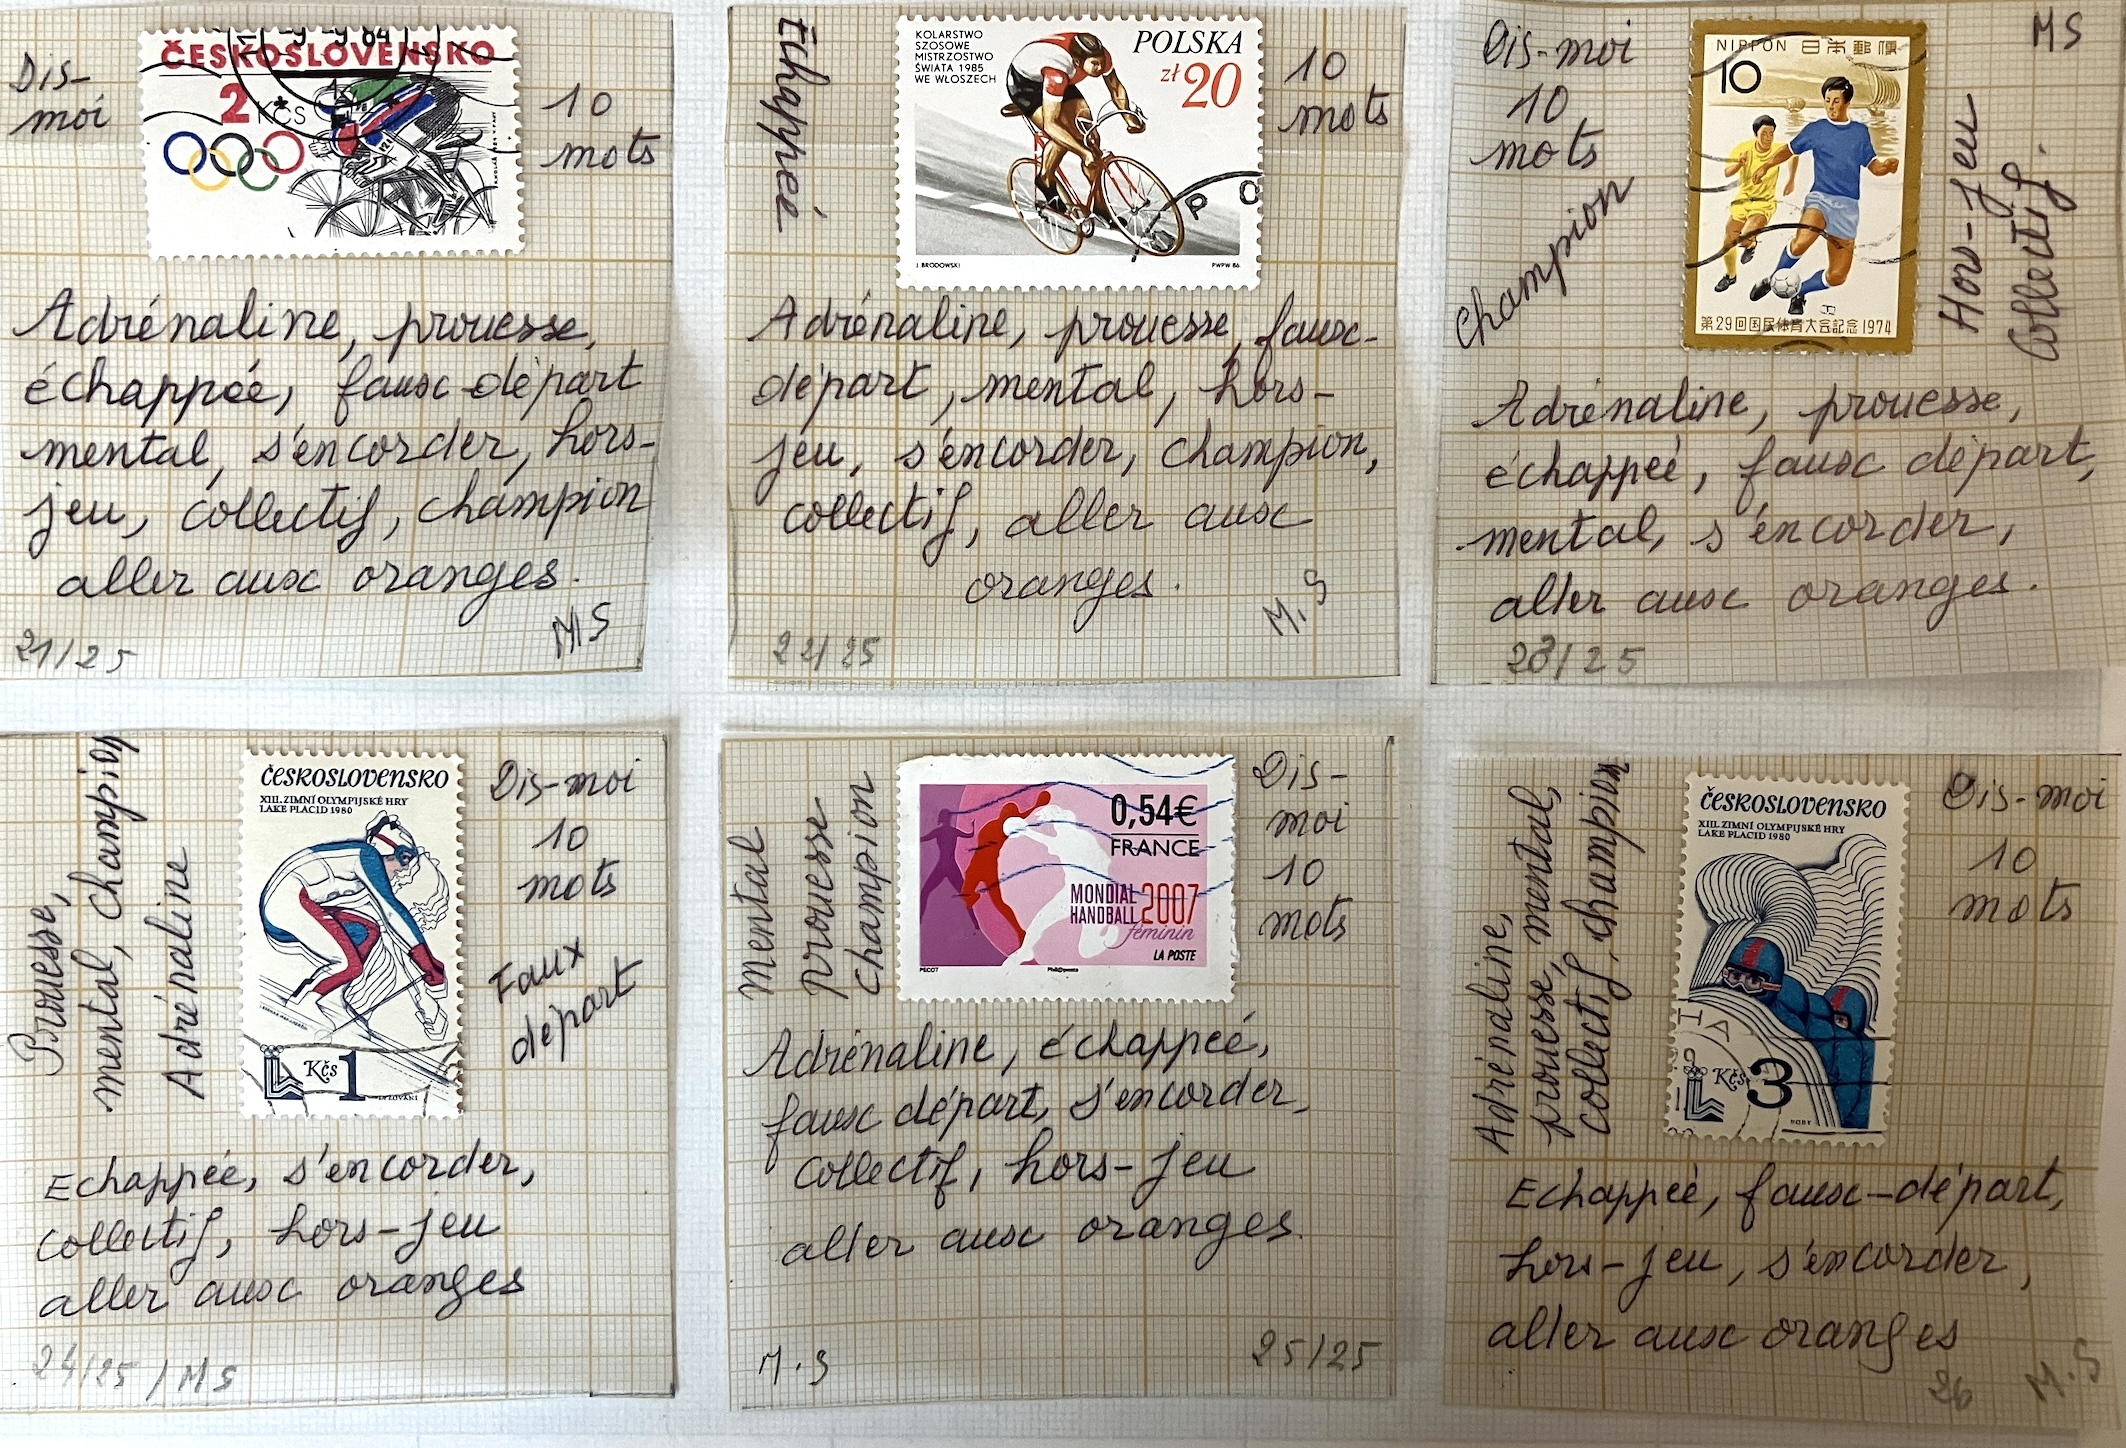 Dis-
moi
9-9-84
ČESKOSLOVENSKO
2 KČS
10
mots
Adrénaline, prouesse,
échappée, faux-départ
mental, s'encorder, hors-
jeu, collectif, champion
aller aux oranges.
21/25
MS
Echappée
KOLARSTWO
SZOSOWE
MISTRZOSTWO
ŚWIATA 1985
WE WŁOSZECH
POLSKA
zł 20
J. BRODOWSKI
PWPW 86
10
mots
Adrénaline, prouesse, faux-
départ, mental, hors-
jeu, s'encorder, champion,
collectif, aller aux
oranges.
22/25
M.S
Dis-moi
10
mots
Champion
NIPPON 日本郵便
10
第29回国民体育大会記念 1974
MS
Hors-jeu
Collectif.
Adrénaline, prouesse,
échappée, faux départ,
mental, s'encorder,
aller aux oranges.
23/25
Prouesse,
mental, champion
Adrénaline
ČESKOSLOVENSKO
XIII. ZIMNÍ OLYMPIJSKÉ HRY
LAKE PLACID 1980
Kčs 1
Dis-moi
10
mots
Faux
départ
Echappée, s'encorder,
collectif, hors-jeu
aller aux oranges
24/25 / MS
Mental
prouesse
champion
0,54€
FRANCE
MONDIAL
HANDBALL 2007
féminin
LA POSTE
PECOT
Phil@poste
Dis-
moi
10
mots
Adrénaline, échappée,
faux départ, s'encorder,
collectif, hors-jeu
aller aux oranges.
M.S
25/25
Adrénaline,
prouesse, mental,
collectif, champion
ČESKOSLOVENSKO
XIII. ZIMNÍ OLYMPIJSKÉ HRY
LAKE PLACID 1980
Kčs 3
Dis-moi
10
mots
Echappée, faux-départ,
hors-jeu, s'encorder,
aller aux oranges
26
M.S